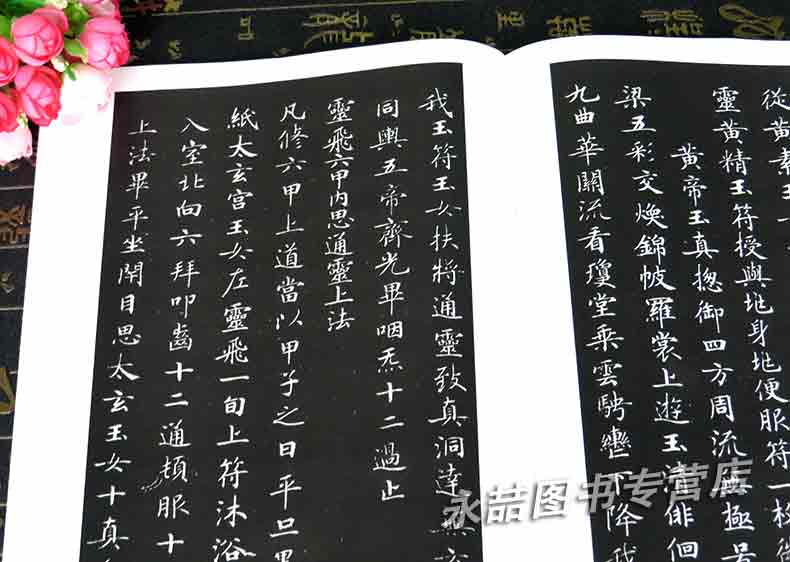 從黃素
靈黃精玉符授與地身地便服符一枚微
黃帝玉真揔御四方周流無極号
梁五彩交煥錦帔羅裳上遊玉清俳佪
九曲華關流看瓊堂乘雲騁轡下降我
我玉符玉女扶將通靈致真洞達無
同輿五帝齊光畢咽炁十二過止
靈飛六甲內思通靈上法
凡修六甲上道當以甲子之日平旦墨
紙太玄宮玉女左靈飛一旬上符沐浴
入室北向六拜叩齒十二通頓服十
上法畢平坐閉目思太玄玉女十真
永喆图书专营店